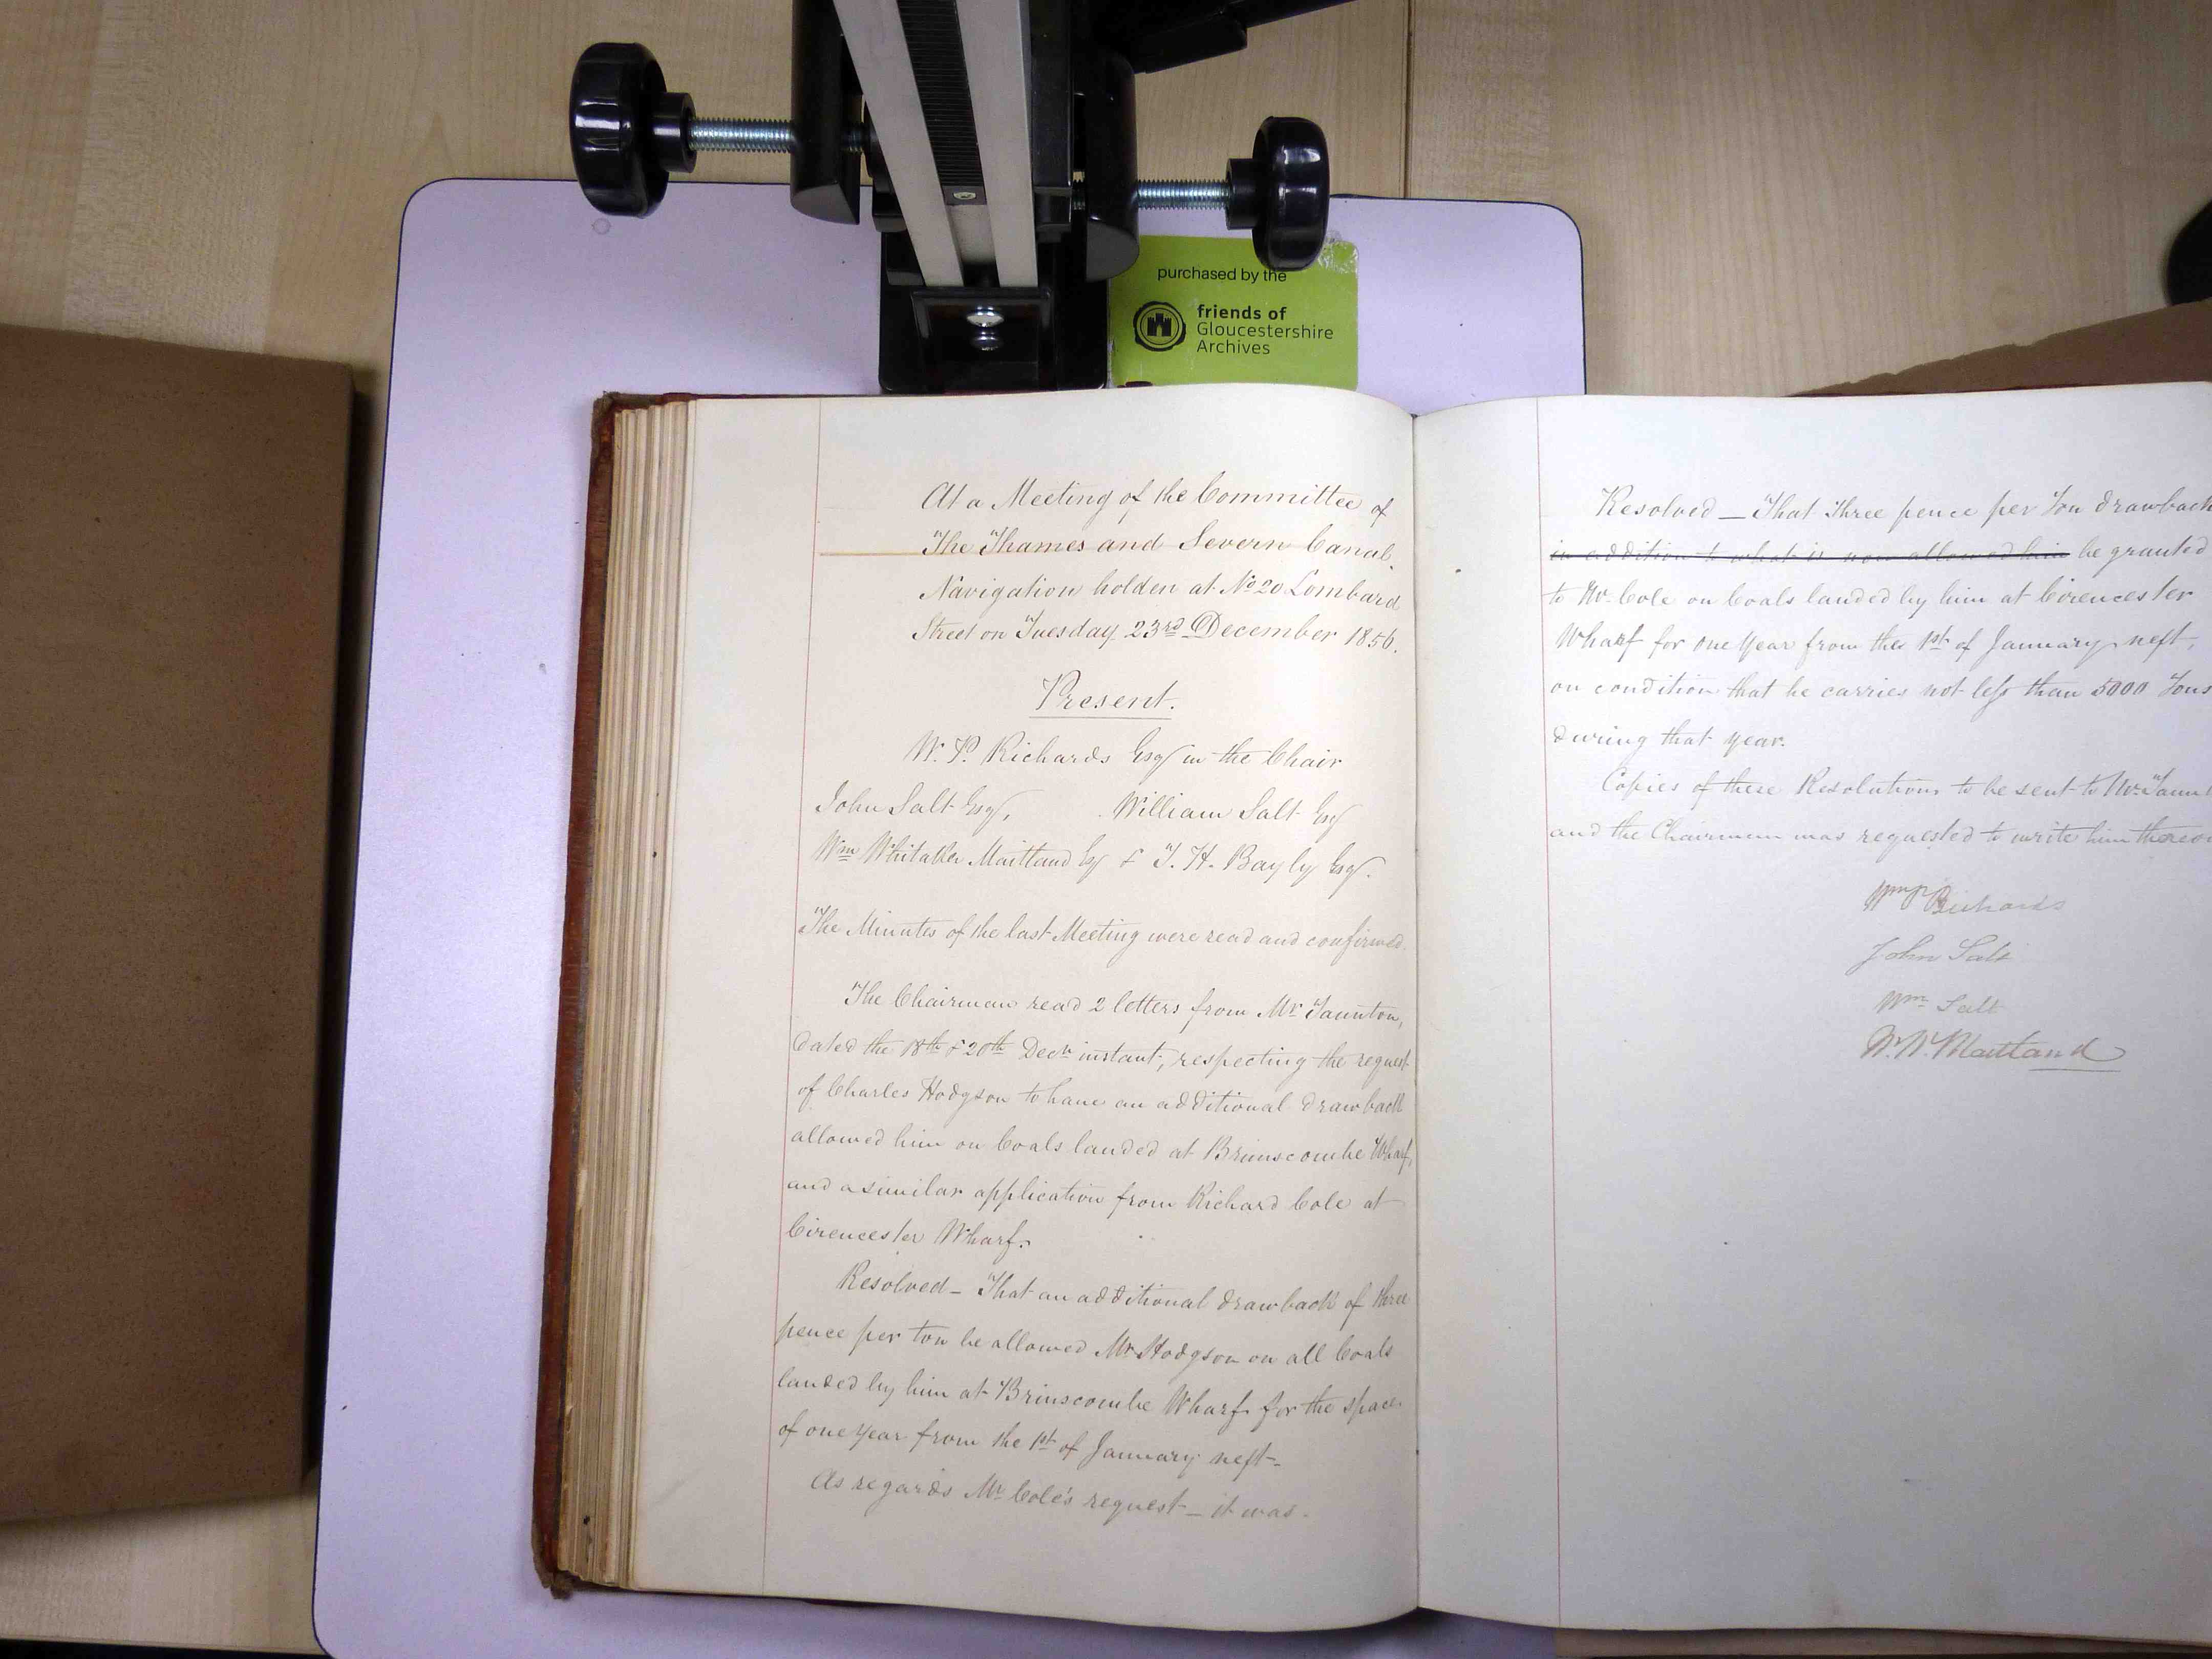 purchased by the
friends of
Gloucestershire
Archives
At a Meeting of the Committee of
The Thames and Severn Canal
Navigation holden at No 20 Lombard
Street on Tuesday 23rd December 1856.
Present.
W. P. Richards Esqr in the Chair
John Salt Esqr, William Salt Esqr
Wm Whitaker Maitland Esqr & T. H. Bayly Esqr.
The Minutes of the last Meeting were read and confirmed.
The Chairman read 2 letters from Mr Taunton,
dated the 18th & 20th Decr instant, respecting the request
of Charles Hodgson to have an additional drawback
allowed him on Coals landed at Brimscombe Wharf,
and a similar application from Richard Cole at
Cirencester Wharf.
Resolved – That an additional drawback of three
pence per ton be allowed Mr Hodgson on all Coals
landed by him at Brimscombe Wharf for the space
of one Year from the 1st of January next.
As regards Mr Cole's request – it was.
Resolved – That Three pence per Ton drawback
in addition to what is now allowed him be granted
to Mr Cole on Coals landed by him at Cirencester
Wharf for one Year from the 1st of January next,
on condition that he carries not less than 5000 Tons
during that year.
Copies of these Resolutions to be sent to Mr
and the Chairman was requested to write him
Wm P Richards
John Salt
Wm Salt
W. W. Maitland